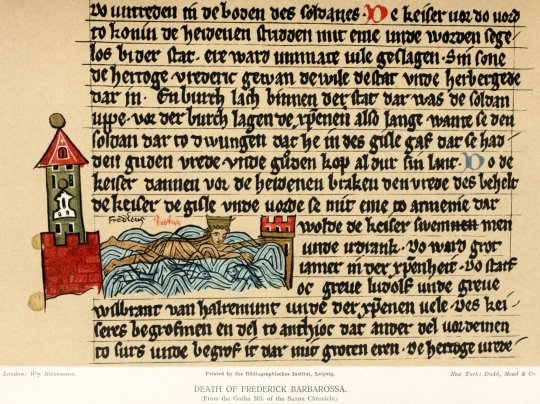 vo untreden in de boden des soldanes. De keiser vor do vord
to konin de heidenen stridden mit eme unde worden sege
los bi der stat. ere ward unmate vile geslagen. Sin sone
de hertoge vrederic gewan de wile de stat unde herbergede
dar in. En burch lach binnen der stat dar was de soldan
uppe. vor der burch lagen de xp̄enen also lange wante se den
soldan dar to dwungen dat he in des gisle gaf dat se had
den guden vrede unde guden kop al dur sin lant. Do de
keiser dannen vor de heidenen braken den vrede des behelt
de keiser de gisle unde vorde se mit eme to armenie dar
wolde de keiser swemmen
unde udrank. Do ward grot
iamer in der xp̄enheit. Do starf
oc greve ludolf unde greve
wilbrant van halremunt unde der xp̄enen vele. Des kei
seres begrofmen en del to anthioc dat ander del vordemen
to surs unde begrof it dar mit groten eren. De hertoge vrede
London: Wm Heinemann.
Printed by the Bibliographisches Institut, Leipzig.
New York: Dodd, Mead & Co.
DEATH OF FREDERICK BARBAROSSA.
(From the Gotha MS. of the Saxon Chronicle).